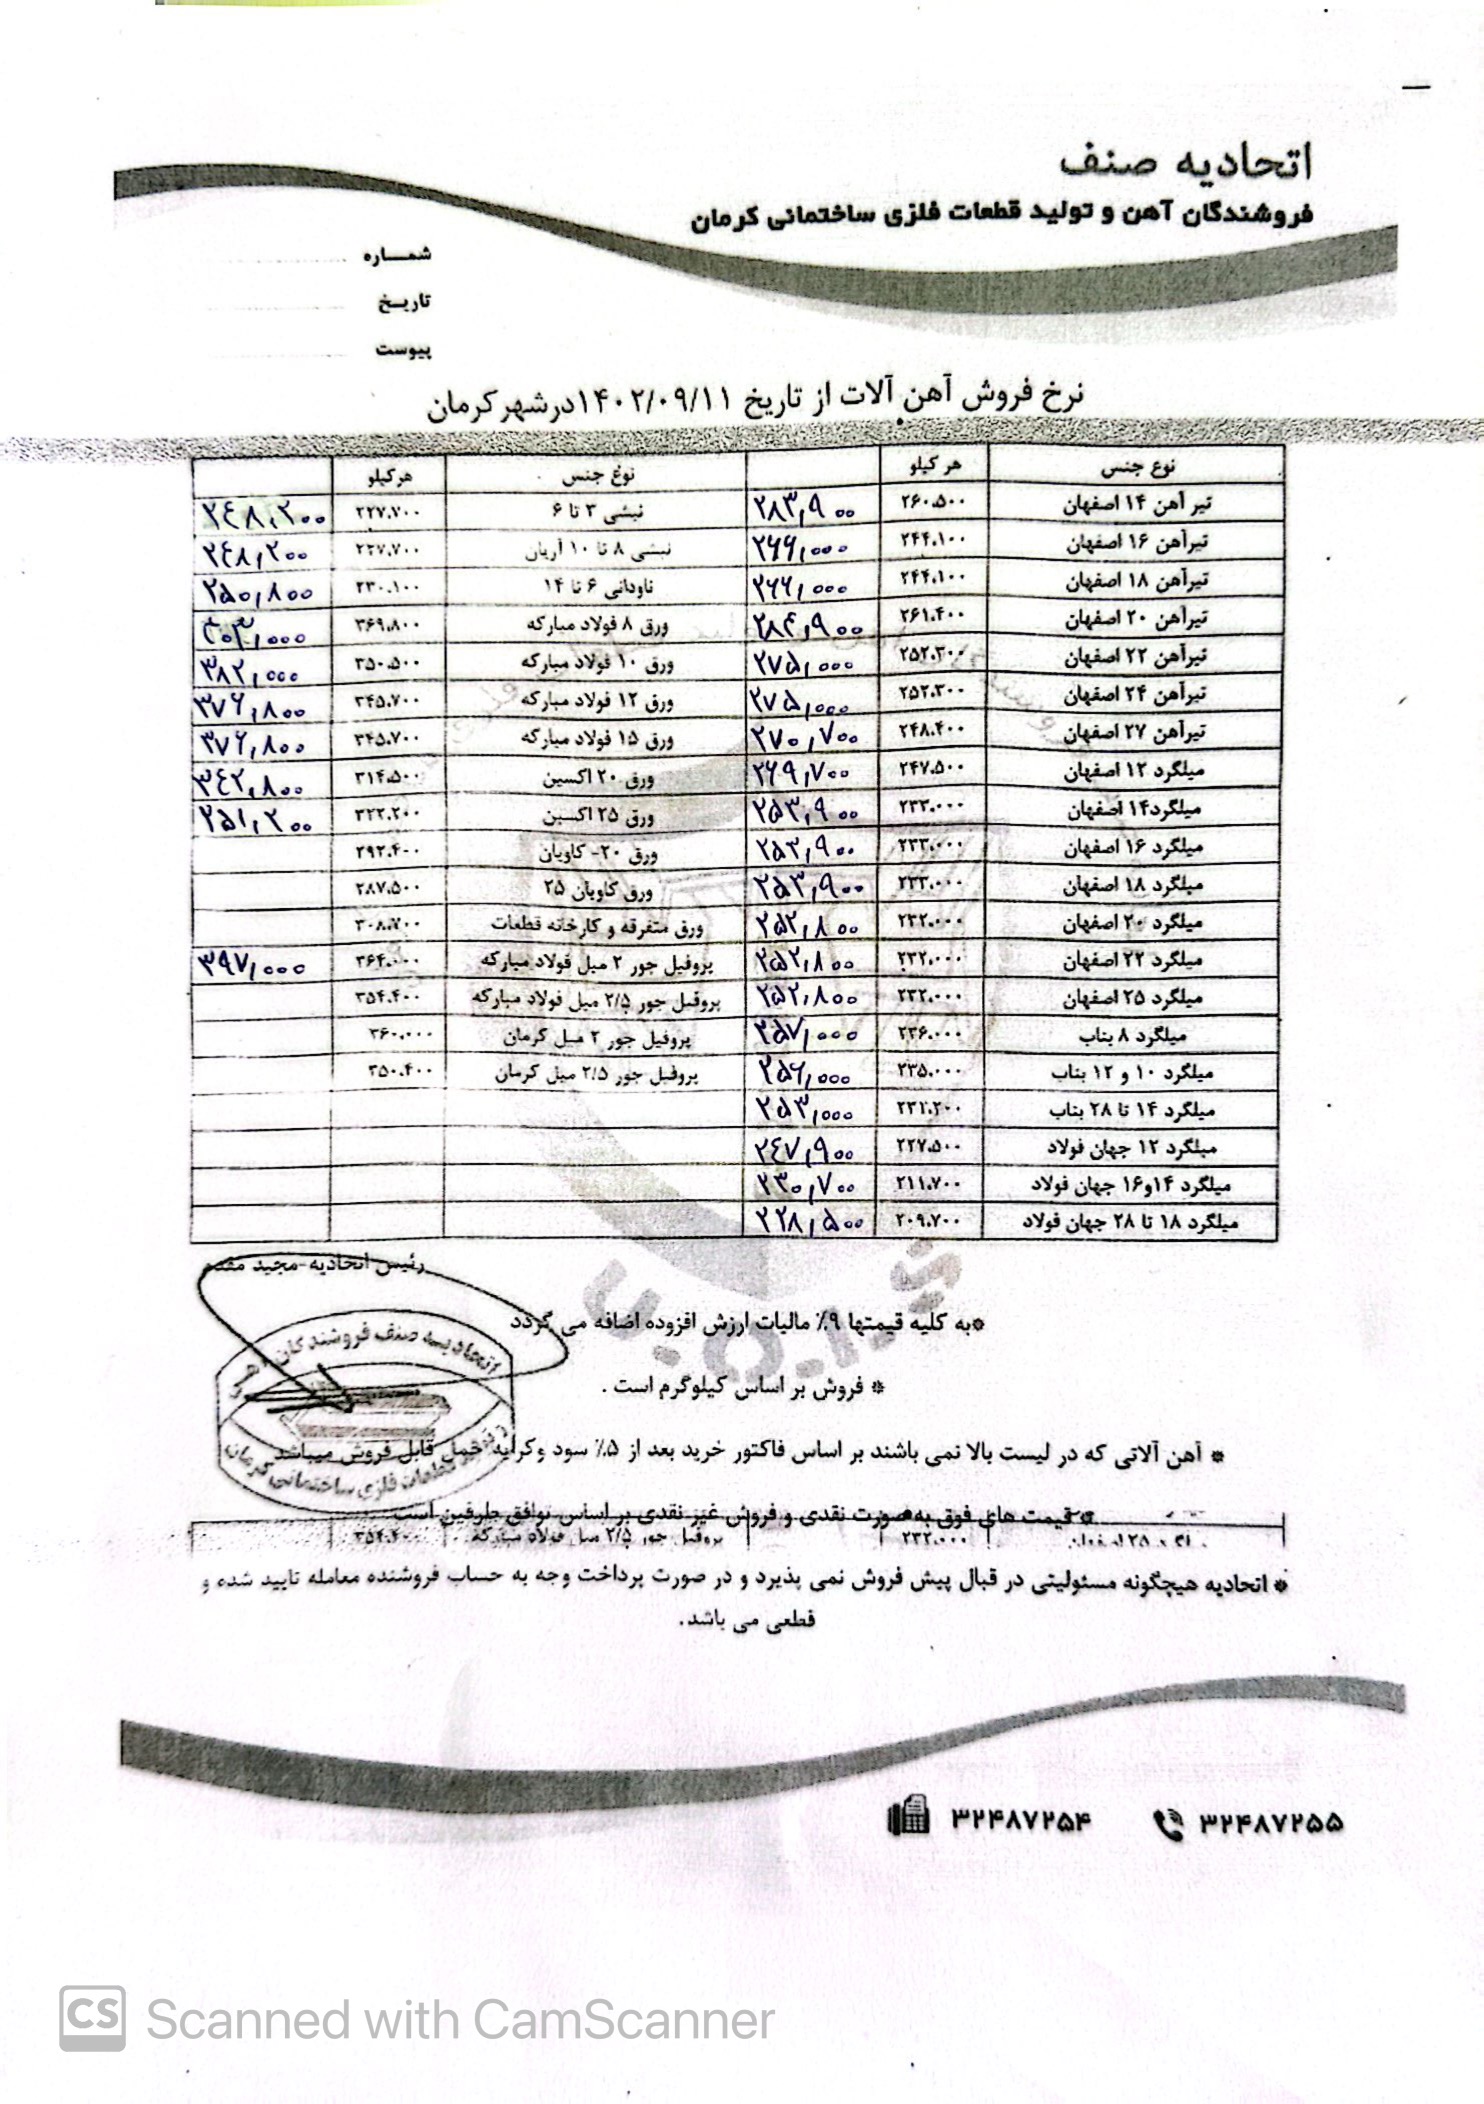 اتحادیه صنف
فروشندگان آهن و تولید قطعات فلزی ساختمانی کرمان
شمــاره
تاریـخ
پیوست
نرخ فروش آهن آلات از تاریخ ۱۴۰۲/۰۹/۱۱درشهرکرمان
نوع جنس هر کیلو نوع جنس هرکیلو
تیر آهن ۱۴ اصفهان ۲۶۰.۵۰۰ ۲۸۳,۹۰۰ نبشی ۳ تا ۶ ۲۲۷.۷۰۰ ۲۴۸,۲۰۰
تیرآهن ۱۶ اصفهان ۲۴۴.۱۰۰ ۲۶۶,۰۰۰ نبشی ۸ تا ۱۰ آریان ۲۲۷.۷۰۰ ۲۴۸,۲۰۰
تیرآهن ۱۸ اصفهان ۲۴۴.۱۰۰ ۲۶۶,۰۰۰ ناودانی ۶ تا ۱۴ ۲۳۰.۱۰۰ ۲۵۰,۸۰۰
تیرآهن ۲۰ اصفهان ۲۶۱.۴۰۰ ۲۸۴,۹۰۰ ورق ۸ فولاد مبارکه ۳۶۹.۸۰۰
تیرآهن ۲۲ اصفهان ۲۵۲.۳۰۰ ۲۷۵,۰۰۰ ورق ۱۰ فولاد مبارکه ۳۵۰.۵۰۰ ۳۸۲,۰۰۰
تیرآهن ۲۴ اصفهان ۲۵۲.۳۰۰ ۲۷۵,۰۰۰ ورق ۱۲ فولاد مبارکه ۳۴۵.۷۰۰ ۳۷۶,۸۰۰
تیرآهن ۲۷ اصفهان ۲۴۸.۴۰۰ ۲۷۰,۷۰۰ ورق ۱۵ فولاد مبارکه ۳۴۵.۷۰۰ ۳۷۶,۸۰۰
میلگرد ۱۲ اصفهان ۲۴۷.۵۰۰ ۲۶۹,۷۰۰ ورق ۲۰ اکسین ۳۱۴.۵۰۰ ۳۴۲,۸۰۰
میلگرد۱۴ اصفهان ۲۳۳.۰۰۰ ۲۵۳,۹۰۰ ورق ۲۵ اکسین ۳۲۲.۲۰۰ ۲۵۱,۲۰۰
میلگرد ۱۶ اصفهان ۲۳۳.۰۰۰ ۲۵۳,۹۰۰ ورق ۲۰- کاویان ۲۹۲.۴۰۰
میلگرد ۱۸ اصفهان ۲۳۳.۰۰۰ ۲۵۳,۹۰۰ ورق کاویان ۲۵ ۲۸۷.۵۰۰
میلگرد ۲۰ اصفهان ۲۳۲.۰۰۰ ۲۵۲,۸۰۰ ورق متفرقه و کارخانه قطعات ۳۰۸.۷۰۰
میلگرد ۲۲ اصفهان ۲۳۲.۰۰۰ ۲۵۲,۸۰۰ پروفیل جور ۲ میل فولاد مبارکه ۳۶۴.۰۰۰ ۳۹۷,۰۰۰
میلگرد ۲۵ اصفهان ۲۳۲.۰۰۰ ۲۵۲,۸۰۰ پروفیل جور ۲/۵ میل فولاد مبارکه ۳۵۴.۴۰۰
میلگرد ۸ بناب ۲۳۶.۰۰۰ ۲۵۷,۰۰۰ پروفیل جور ۲ میل کرمان ۳۶۰.۰۰۰
میلگرد ۱۰ و ۱۲ بناب ۲۳۵.۰۰۰ ۲۵۶,۰۰۰ پروفیل جور ۲/۵ میل کرمان ۳۵۰.۴۰۰
میلگرد ۱۴ تا ۲۸ بناب ۲۳۲.۲۰۰ ۲۵۳,۰۰۰
میلگرد ۱۲ جهان فولاد ۲۲۷.۵۰۰ ۲۴۷,۹۰۰
میلگرد ۱۴و۱۶ جهان فولاد ۲۱۱.۷۰۰ ۲۳۰,۷۰۰
میلگرد ۱۸ تا ۲۸ جهان فولاد ۲۰۹.۷۰۰ ۲۲۸,۵۰۰
رئیس اتحادیه-مجید
اتحادیه صنف فروشندگان آهن
قطعات فلزی ساختمانی کرمان
*به کلیه قیمتها ۹٪ مالیات ارزش افزوده اضافه می گردد
* فروش بر اساس کیلوگرم است .
* آهن آلاتی که در لیست بالا نمی باشند بر اساس فاکتور خرید بعد از ۵٪ سود وکرایه حمل قابل فروش میباشد
* قیمت های فوق به صورت نقدی و فروش غیر نقدی بر اساس توافق طرفین است
میلگرد ۲۵ اصفهان ۲۳۲.۰۰۰ پروفیل جور ۲/۵ میل فولاد مبارکه ۳۵۴.۴۰۰
* اتحادیه هیچگونه مسئولیتی در قبال پیش فروش نمی پذیرد و در صورت پرداخت وجه به حساب فروشنده معامله تایید شده و
قطعی می باشد.
۳۲۴۸۷۲۵۵ ۳۲۴۸۷۲۵۴
CS Scanned with CamScanner